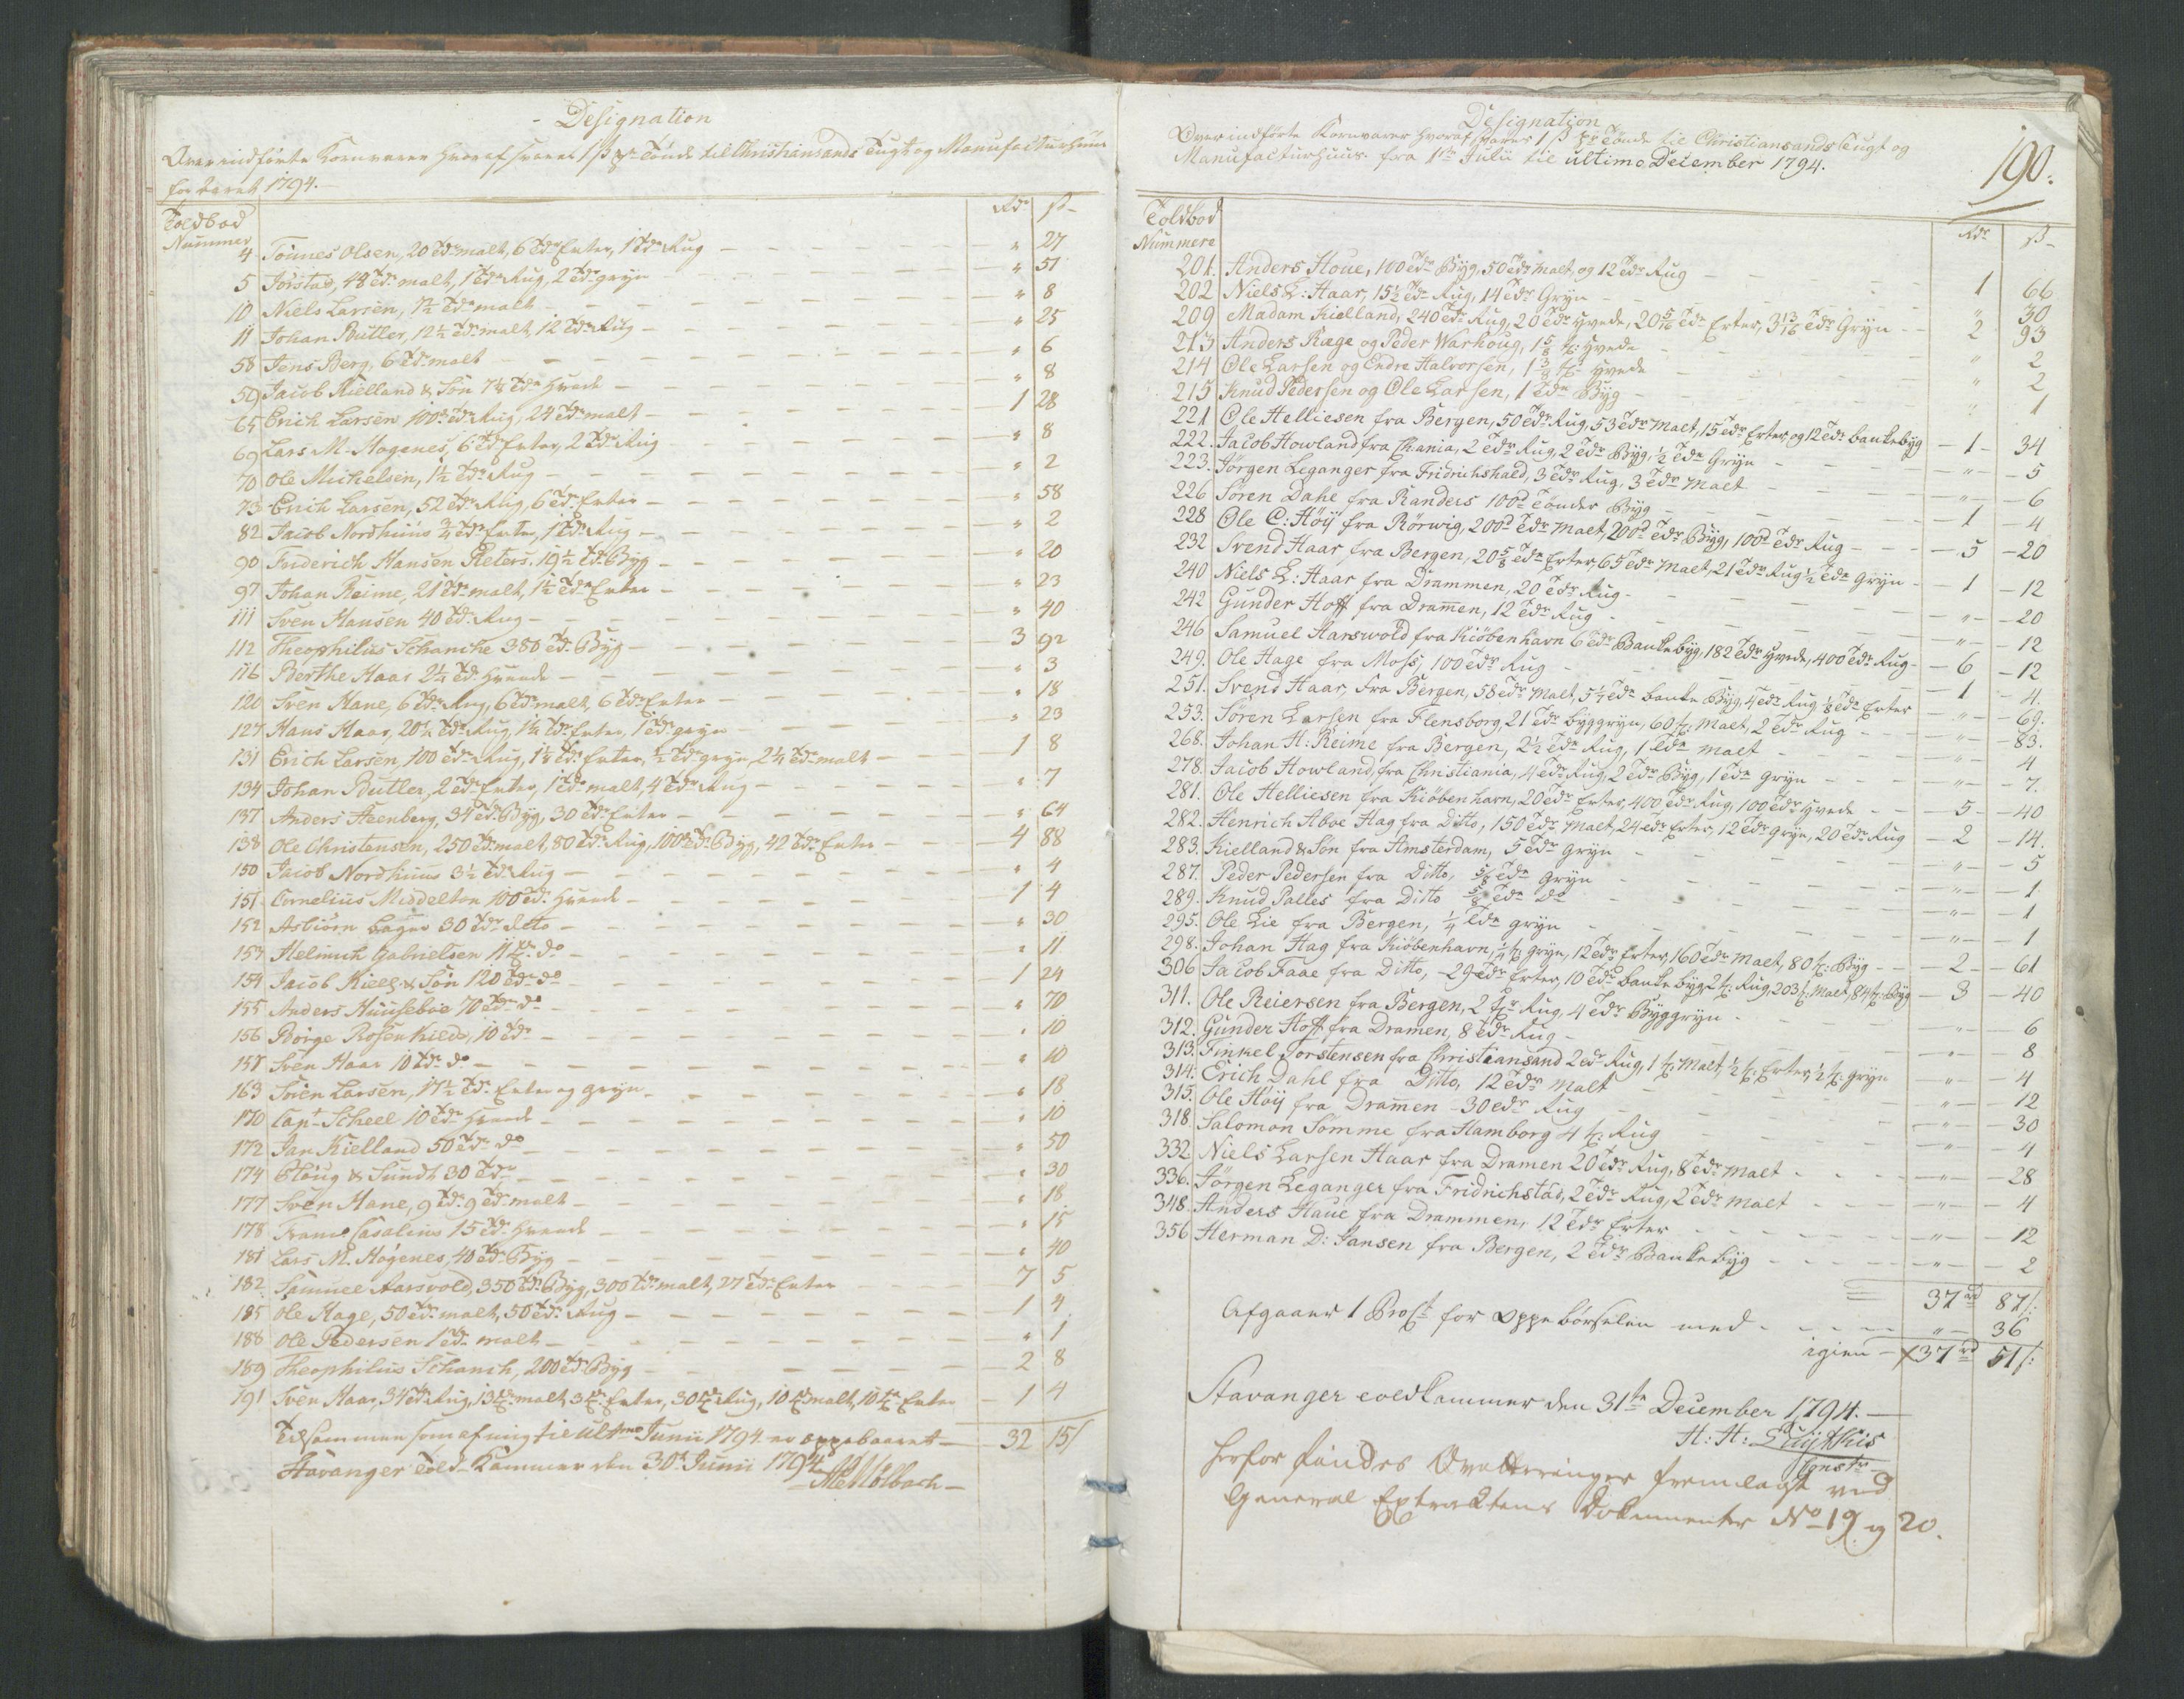 Designation
Over indførte Kornvarer hvoraf svares 1 ß pr Tönde til Christiansands Tugt og Manufacturhuus
for Aaret 1794.
Toldbod
Nummer Rdr ß
4 Tönnes Olsen, 20 Tdr malt, 6 Tdr Erter, 1 Tde Rug " 27
5 Jorstad, 48 Tdr malt, 1 Tde Rug, 2 Tdr gryn " 51
10 Niels Larsen, 7½ Tde malt " 8
11 Johan Butler, 12½ Tde malt, 12 Tdr Rug " 25
58 Jens Berg, 6 Tdr malt " 6
59 Jacob Kielland & Søn 7⅞ Tde Hvede " 8
65 Erich Larsen 100de Tdr Rug, 24 Tdr malt 1 28
69 Lars M. Hogenes, 6 Tdr Erter, 2 Tdr Rug " 8
70 Ole Michelsen, 1½ Tde Rug " 2
73 Erich Larsen, 52 Tdr Rug, 6 Tdr Erter " 58
82 Jacob Nordhuus ¾ Tde Erter, 1 Tde Rug " 2
90 Friderich Hansen Pleters. 19½ Tde Byg " 20
97 Johan Reime, 21 Tdr malt, 1½ Tde Erter " 23
111 Sven Hausen 40 Tdr Rug " 40
112 Theophilus Schanche 380 Tdr Byg 3 92
116 Berthe Haar 2¼ Tdr Hvede " 3
120 Sven Hane, 6 Tdr Rug, 6 Tdr malt, 6 Tdr Erter " 18
127 Hans Haar, 20¼ Tde Rug, 1¼ Tde Erter, 1 Tde gryn " 23
131 Erich Larsen, 100 Tdr Rug, 1¼ Tde Erter, ½ Tde gryn 2¼ Tde malt 1 8
134 Johan Butler, 2 Tdr Erter, 1 Tde malt, 4 Tdr Rug " 7
137 Anders Steenberg, 34 Tdr Byg, 30 Tdr Erter " 64
138 Ole Christensen, 250 Tdr malt, 80 Tdr Rug, 100de Tdr Byg, 42 Tdr Erter 4 88
150 Jacob Nordhuus 3½ Tde Rug " 4
151 Cornelius Middelton 100 Tdr Hvede 1 4
152 Asbiörn Lager 30 Tdr detto " 30
153 Helmich Gabrielsen 11 Tdr do " 11
154 Jacob Kiell: & Søn 120 Tdr do 1 24
155 Anders Huuseboe 70 Tdr do " 70
156 Börge Rosenkilde, 10 Tdr " 10
157 Sven Haar 10 Tdr do " 10
163 Sören Larsen, 17½ Tdr Erter og gryn " 18
170 Capt Scheel 10 Tdr Hvede " 10
172 Jan Kielland 50 Tdr do " 50
174 Ploug & Sundt 30 Tdr " 30
177 Sven Hane, 9 Tdr 9 Tdr malt " 18
178 Casalius 15 Tdr Hvede " 15
181 Lars M. Høgenes, 40 Tdr Byg " 40
182 Samuel Aarsvold, 350 Tdr Byg, 300 Tdr malt, 27 Tdr Erter 7 5
185 Ole Hage, 50 Tdr malt, 50 Tdr Rug 1 4
188 Ole Pedersen 1 Tde malt " 1
189 Theophilus Schanch, 200 Tdr Byg 2 8
191 Sven Haar, 34 Tdr Rug, 13 Tdr malt 3 Tdr Erter, 30 Tdr Rug, 10 Tdr malt, 10 Tdr Erter 1 4
Tilsammen som af mig til Ultmo Junii 1794 er oppebaaret 32 15/
Stavanger Told-Kammer den 30te Junii 1794
Designation
Over indförte Kornvarer hvoraf svares 1 ß pr Tönde til Christiansands Tugt og
Manufacturhuus. fra 1te Julii til ultimo December 1794. 190.
Toldbod
Nummere Rdr ß
201. Anders Houe, 100 Tdr Byg, 50 Tdr Malt, og 12 Tdr Rug 1 66
202 Niels L: Haar, 15½ Tde Rug, 14 Tdr Gryn " 30
209 Madam Kielland, 240 Tdr Rug, 20 Tdr Hvede, 20 5/16 Tde Erter, 3 13/16 Tdr Gryn 2 93
213 Anders Ræge og Peder Warhoug, 1⅝ T: Hvede " 2
214 Ole Larsen og Endre Halvorsen, 1⅜ T: Hvede " 2
215 Knud Pedersen og Ole Larsen, 1 Tde Byg " 1
221 Ole Helliesen fra Bergen, 50 Tdr Rug, 53 Tdr Malt, 15 Tdr Erter, og 12 Tdr bankebyg 1 34
222. Jacob Howland fra Chania, 2 Tdr Rug, 2 Tdr Byg, ½ Tde Gryn " 5
223. Jörgen Leganger fra Fridrichshald, 3 Tdr Rug, 3 Tdr Malt " 6
226 Sören Dahl fra Randers 100d Tönder Byg 1 4
228 Ole C: Höij fra Rörwig, 200d Tdr Malt, 200d Tdr Byg, 100d Tdr Rug 5 20
232 Svend Haar fra Bergen, 20⅝ Tde Erter, 65 Tdr Malt, 21 Tdr Rug ½ Tde Gryn 1 12
240 Niels L: Haar fra Drammen, 20 Tdr Rug " 20
242 Gunder Hoff fra Dramen, 12 Tdr Rug " 12
246 Samuel Harswold fra Kiöbenhavn 6 Tdr Bankebyg, 182 Tdr Hvede, 400 Tdr Rug 6 12
249. Ole Hage fra Moss, 100 Tdr Rug 1 4.
251. Svend Haar, Fra Bergen, 58 Tdr Malt, 5¼ Tde banke Byg, 4 Tdr Rug ⅛ Tde Erter " 69.
253. Sören Larsen fra Flensborg, 21 Tdr byggryn, 60 T: Malt, 2 Tdr Rug " 83.
268. Johan H: Reime fra Bergen, 2½ Tde Rug, 1 Tde malt " 4
278. Jacob Howland, fra Christiania, 4 Tdr Rug, 2 Tdr Byg, 1 Tde gryn " 7.
281. Ole Helliesen fra Kiöbenhavn, 20 Tdr Erter, 400 Tdr Rug, 100 Tdr Hvede 5 40
282. Henrich Aboe Hag fra Ditto, 150 Tdr Malt, 24 Tdr Erter, 12 Tdr Gryn, 20 Tdr Rug 2 14.
283. Kielland & Sön fra Amsterdam, 5 Tdr gryn " 5
287. Peder Pedersen fra Ditto, ⅝ Tde Gryn " 1
289. Knud Palles fra Ditto ⅝ Tde Do " 1
295. Ole Lie fra Bergen, ¼ Tde gryn " 1
298. Johan Hag fra Kiöbenhavn, ¼ T: gryn, 12 Tdr Erter, 160 Tdr Malt, 80 T: Byg 2 61
306 Jacob Faae fra Ditto, 29 Tdr Erter, 10 Tdr banke byg 2 T: Rug, 203 T: Malt, 84 T: Byg 3 40
311. Ole Reiersen fra Bergen, 2 Tdr Rug, 4 Tdr Byggryn " 6
312. Gunder Hoff fra Dramen, 8 Tdr Rug " 8
313. Finkel Torstensen fra Christiansand 2 Tdr Rug, 1 T: Malt, ½ T: Erter, ½ T: gryn " 4
314. Erich Dahl fra Ditto, 12 Tdr Malt " 12
315. Ole Höij fra Dramen 30 Tdr Rug " 30
318. Salomon Somme fra Hamborg 4 T: Rug " 4
332 Niels Larsen Haar fra Dramen 20 Tdr Rug, 8 Tdr Malt " 28
336. Jörgen Leganger fra Fridrichstad, 2 Tdr Rug, 2 Tdr malt " 4
348. Anders Haue fra Drammen, 12 Tdr Erter " 12
356 Herman D: Jansen fra Bergen, 2 Tdr Bankebyg " 2
37 rd 87 /:
Afgaaer 1 Proct for oppebörselen med " 36
igien 37 rd 51 /:
Stavanger Toldkammer den 31te December 1794.
H: H:
Const:
herfor findes Qvitteringer fremlagt ved
General Extractens Dokumenter No 19 og 20.